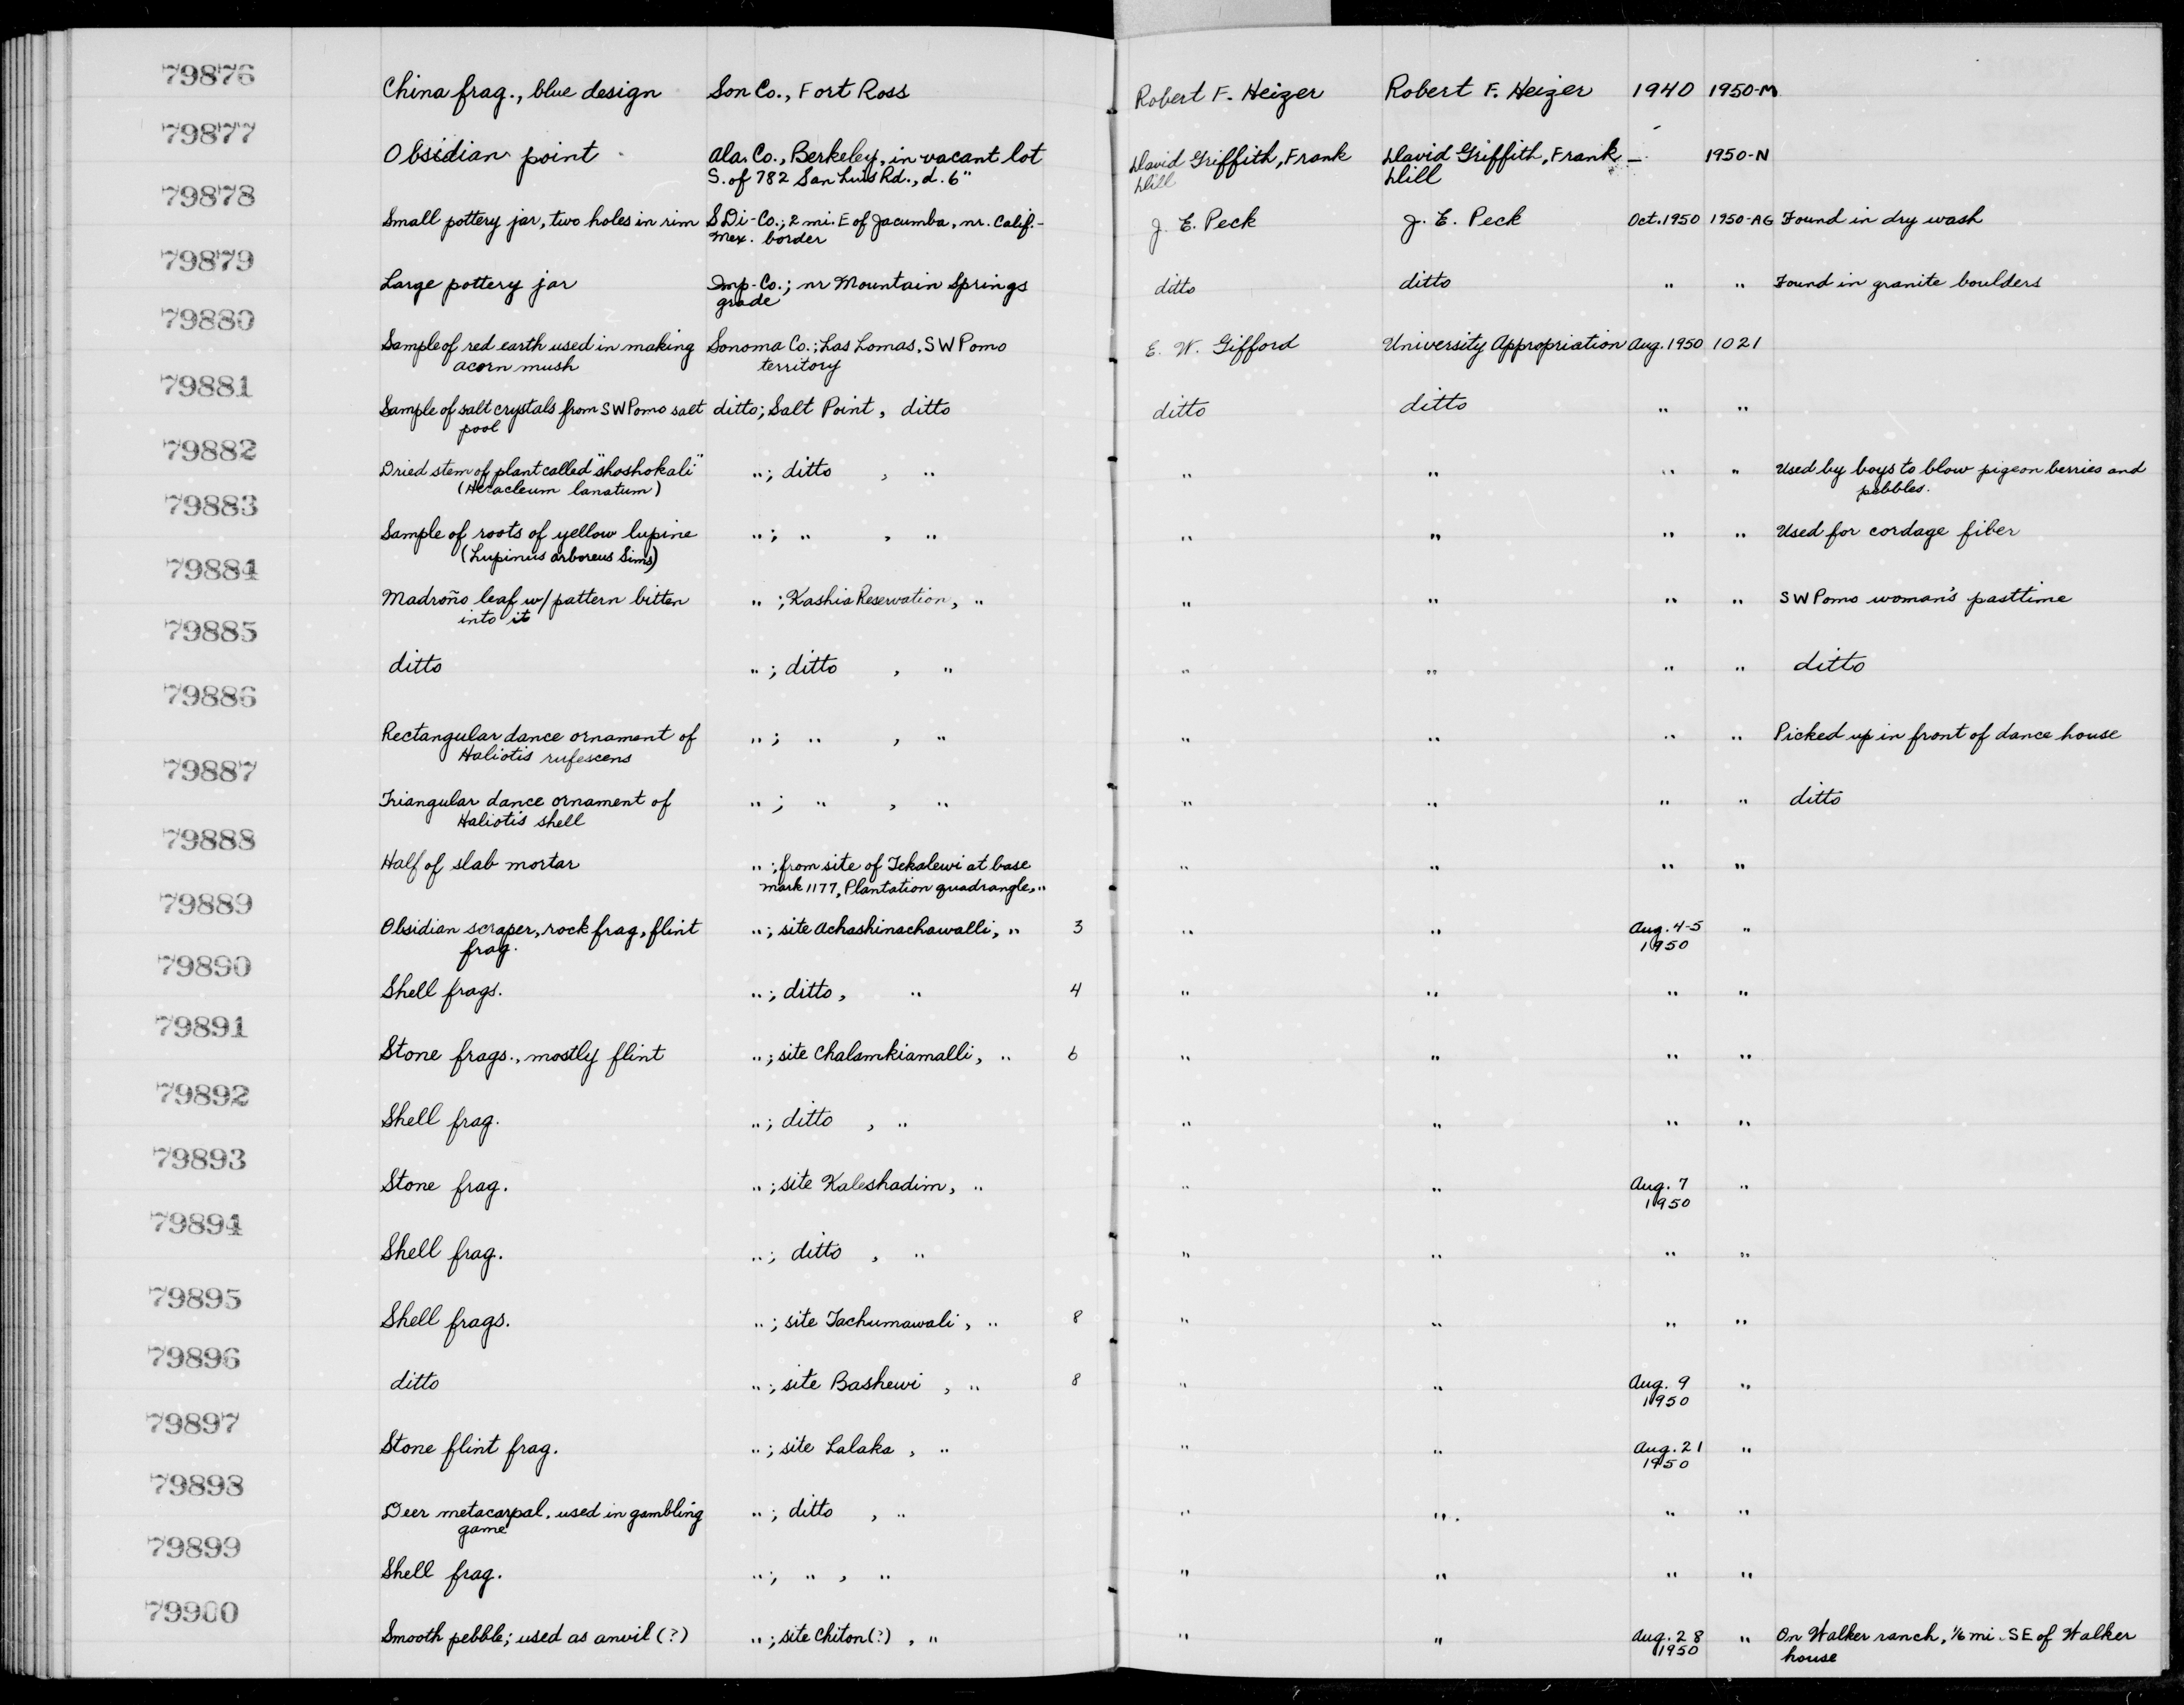 79876
China frag., blue design Son Co., Fort Ross Robert F. Heizer Robert F. Heizer 1940 1950-M
79877
Obsidian point Ala. Co., Berkeley, in vacant lot David Griffith, Frank David Griffith, Frank — 1950-N
S. of 782 San Luis Rd., d. 6" Dill Dill
79878
Small pottery jar, two holes in rim S Di-Co.; 2 mi. E of Jacumba, nr. Calif.- J. E. Peck J. E. Peck Oct. 1950 1950-AG Found in dry wash
Mex. border
79879
Large pottery jar Imp-Co.; nr Mountain Springs ditto ditto " " Found in granite boulders
grade
79880
Sample of red earth used in making Sonoma Co.; Las Lomas, SW Pomo E. W. Gifford University Appropriation Aug. 1950 1021
acorn mush territory
79881
Sample of salt crystals from SW Pomo salt ditto; Salt Point, ditto ditto ditto " "
pool
79882
Dried stem of plant called "shoshokali" "; ditto , " " " " " Used by boys to blow pigeon berries and
(Heracleum lanatum) pebbles.
79883
Sample of roots of yellow lupine "; " , " " " " " Used for cordage fiber
(Lupinus arboreus Sims)
79884
Madroño leaf w/ pattern bitten " ; Kashia Reservation, " " " " " SW Pomo woman's pasttime
into it
79885
ditto "; ditto , " " " " " ditto
79886
Rectangular dance ornament of "; " , " " " " " Picked up in front of dance house
Haliotis rufescens
79887
Triangular dance ornament of "; " , " " " " " ditto
Haliotis shell
79888
Half of slab mortar "; from site of Tekalewi at base " " " "
mark 1177, Plantation quadrangle, "
79889
Obsidian scraper, rock frag, flint "; site Achashinachawalli, " 3 " " Aug. 4-5 "
frag. 1950
79890
Shell frags. "; ditto, " 4 " " " "
79891
Stone frags., mostly flint "; site Chalamkiamalli, " 6 " " " "
79892
Shell frag. "; ditto , " " " " "
79893
Stone frag. "; site Kaleshadim, " " " Aug. 7 "
1950
79894
Shell frag. "; ditto , " " " " "
79895
Shell frags. "; site Tachumawali, " 8 " " " "
79896
ditto "; site Bashewi , " 8 " " Aug. 9 "
1950
79897
Stone flint frag. "; site Lalaka , " " " Aug. 21 "
1950
79898
Deer metacarpal, used in gambling "; ditto , " " " " "
game
79899
Shell frag. "; " , " " " " "
79900
Smooth pebble; used as anvil (?) "; site Chiton(?) , " " " Aug. 28 " On Walker ranch, 1/6 mi. SE of Walker
1950 house